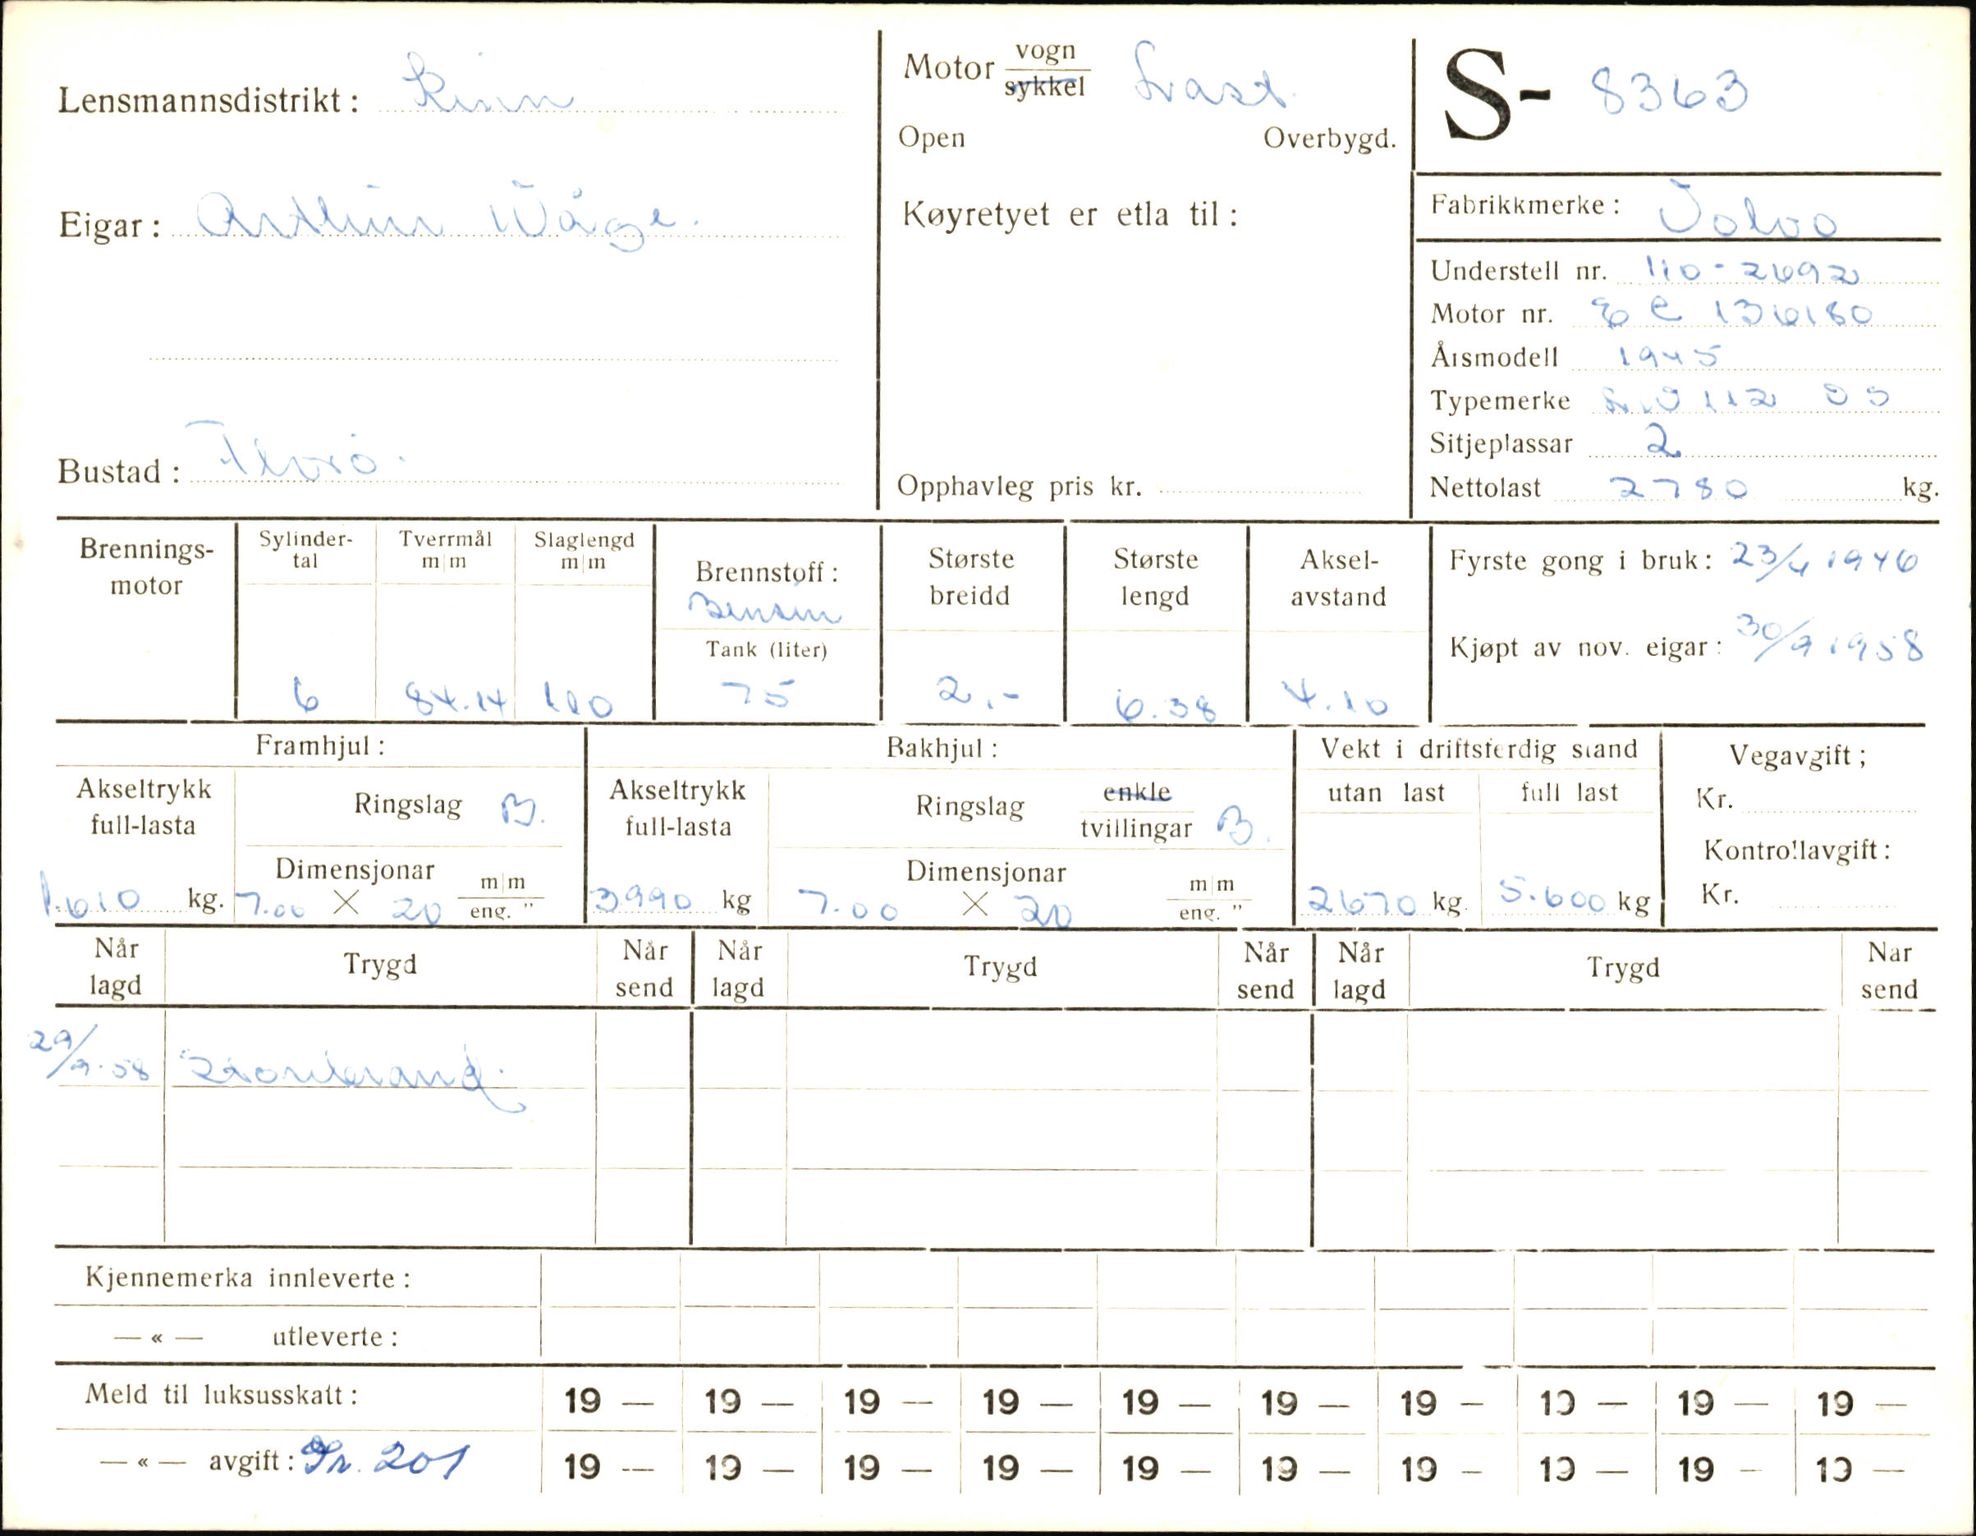 Lensmannsdistrikt: Kinn
Eigar: Arthur Våge.
Bustad: Florø.
Motor vogn
sykkel Last.
Open Overbygd.
Køyretyet er etla til:
Opphavleg pris kr.
S- 8363
Fabrikkmerke: Volvo
Understell nr. 110-2692
Motor nr. E C 136180
Årsmodell 1945
Typemerke L.V 112 DS
Sitjeplassar 2
Nettolast 2780 kg.
Brennings-
motor
Sylinder-
tal
6
Tverrmål
m/m
84.14
Slaglengd
m/m
110
Brennstoff:
Bensin
Tank (liter)
75
Største
breidd
2.-
Største
lengd
6.38
Aksel-
avstand
4.10
Fyrste gong i bruk: 23/4 1946
Kjøpt av nov. eigar: 30/9 1958
Framhjul:
Akseltrykk
full-lasta
1.610 kg.
Ringslag B.
Dimensjonar
7.00 X 20 m/m
eng. "
Bakhjul:
Akseltrykk
full-lasta
3990 kg
Ringslag enkle
tvillingar B.
Dimensjonar
7.00 X 20 m/m
eng. "
Vekt i driftsferdig stand
utan last full last
2670 kg. 5.600 kg
Vegavgift;
Kr.
Kontrollavgift:
Kr.
Når
lagd Trygd Når
send Når
lagd Trygd Når
send Når
lagd Trygd Nar
send
29/9-58 Storebrand.
Kjennemerka innleverte:
— « — utleverte:
Meld til luksusskatt: 19 — 19 — 19 — 19 — 19 — 19 — 19 — 19 — 19 — 19 —
— « — avgift: Gr. 201 19 — 19 — 19 — 19 — 19 — 19 — 19 — 19 — 19 — 19 —